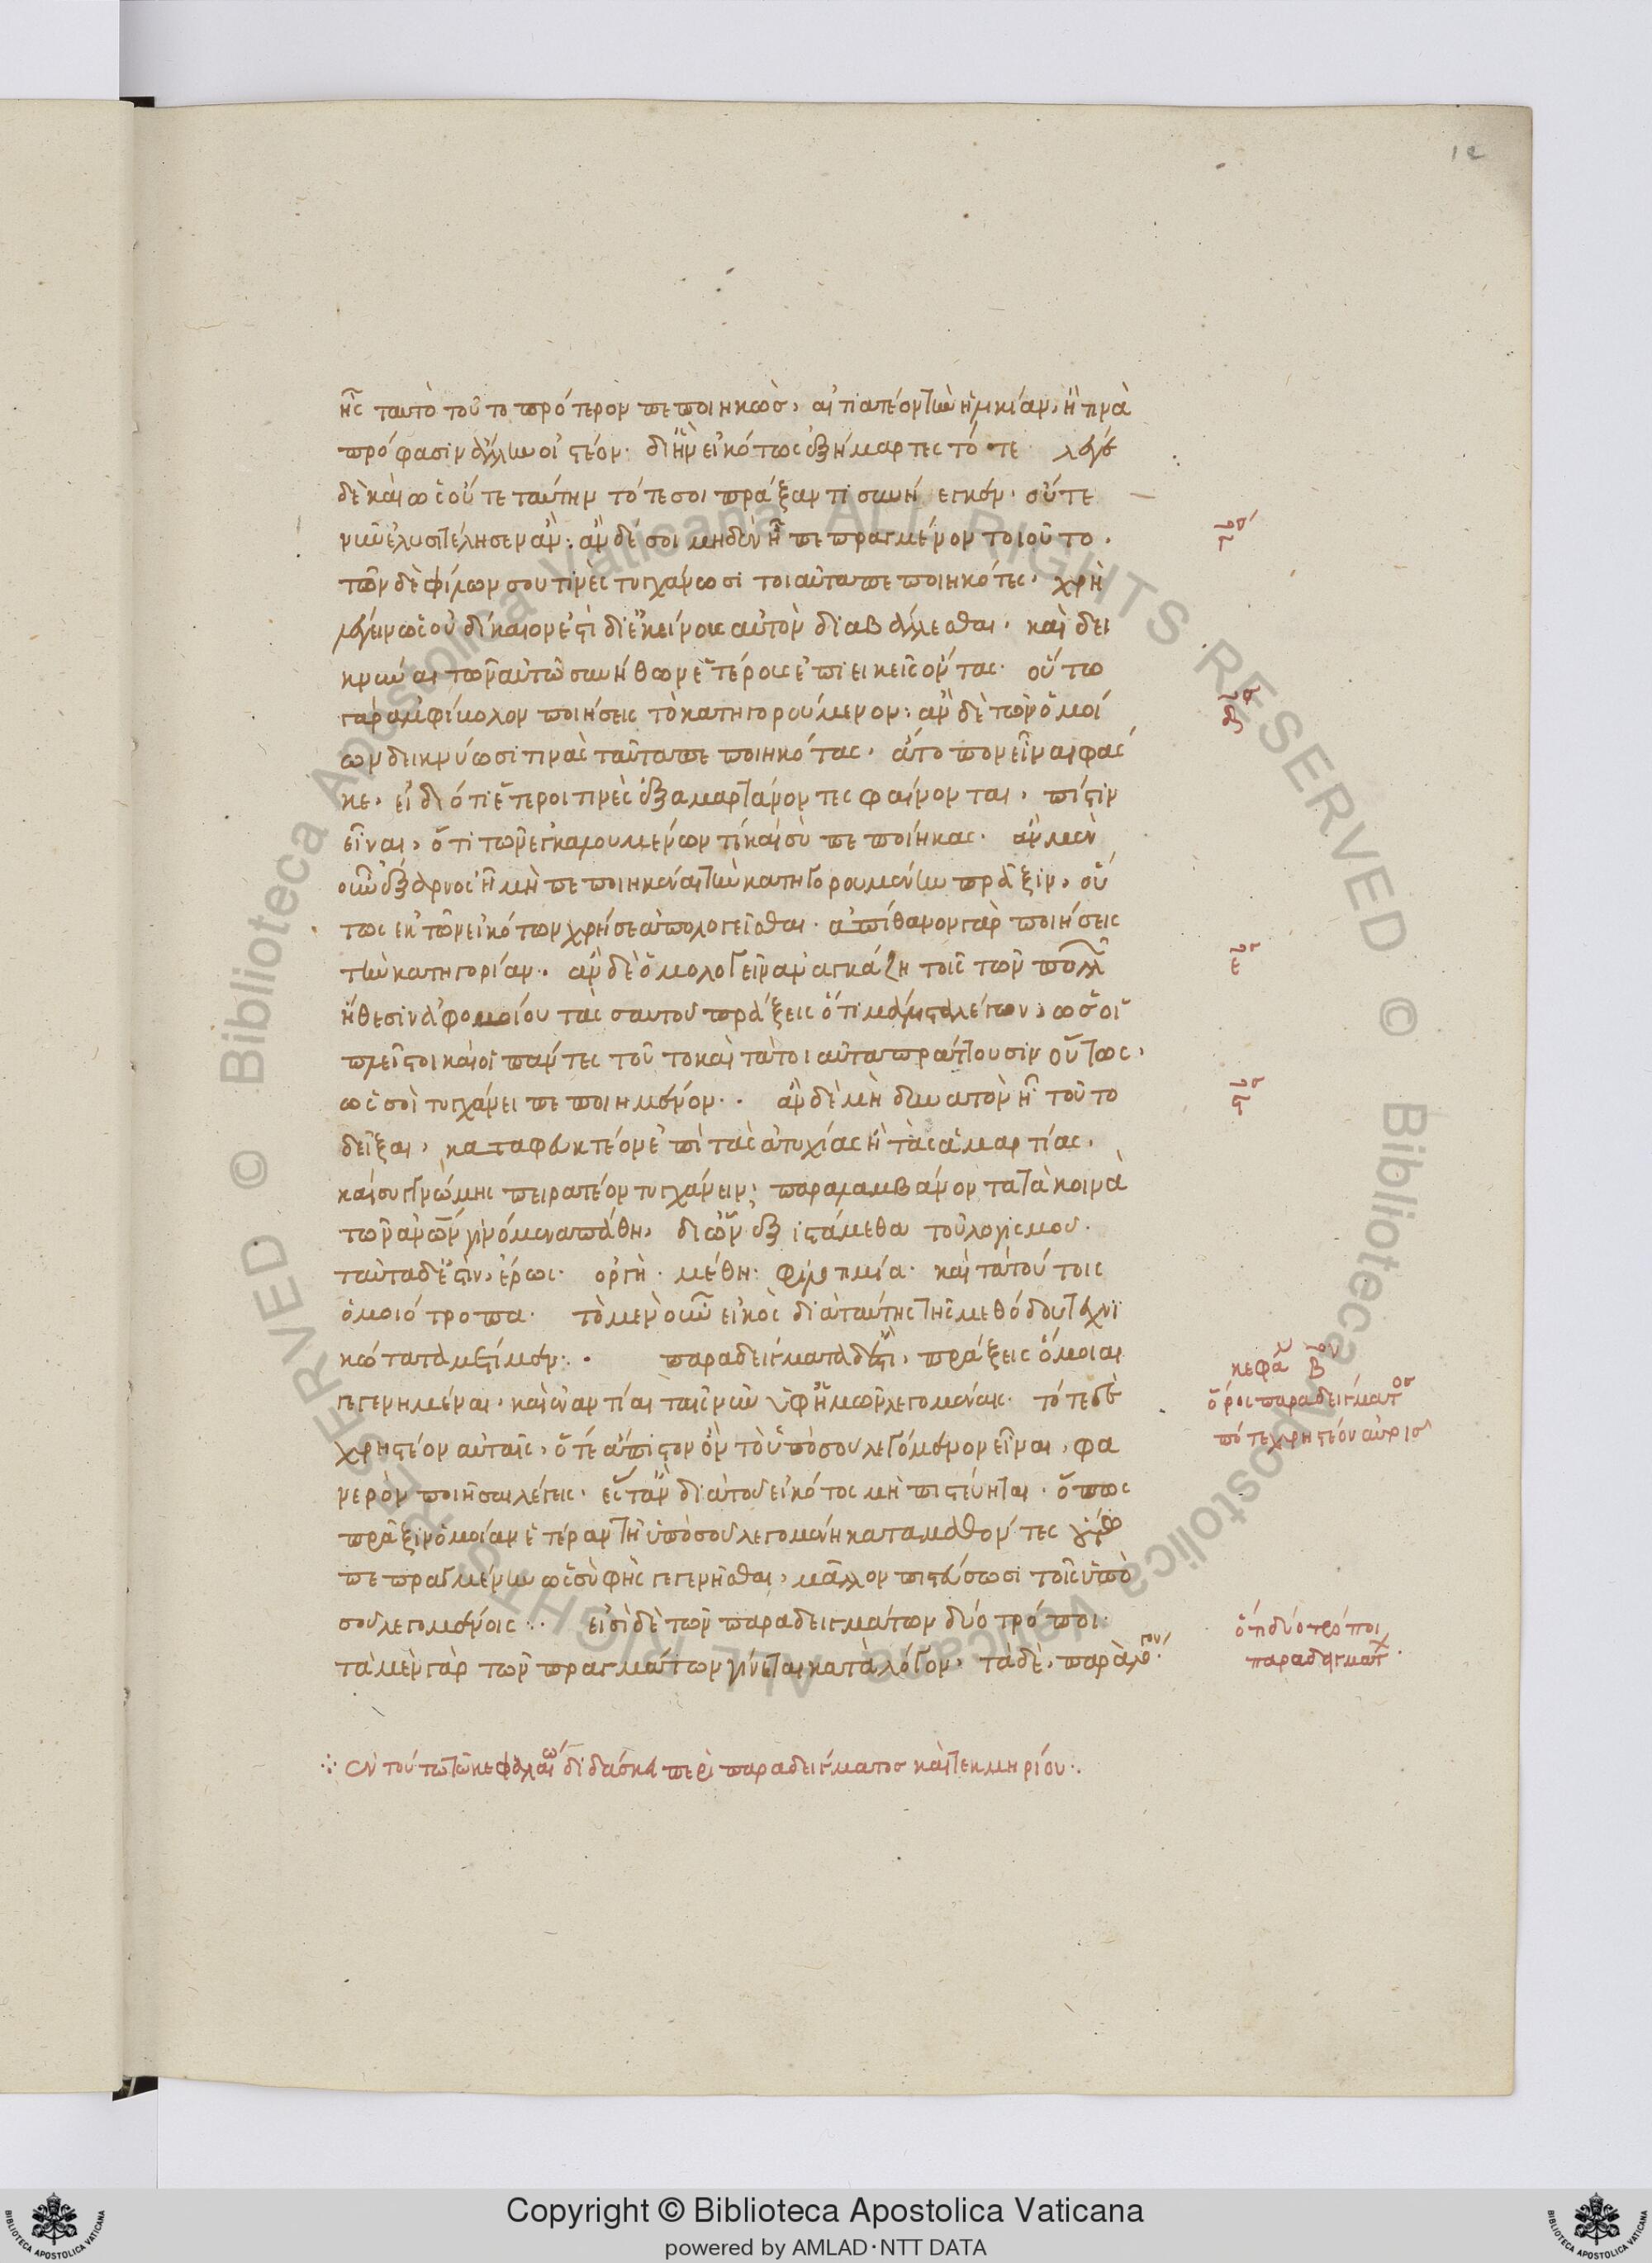 12
ᾖς ταυτὸ τοῦτο πρότερον πεποιηκὼς, αἰτιατέον τὴν ἡλικίαν, ἤ τινα
πρόφασιν ἄλλην οἰστέον· δι ἣν εἰκότως ἐξήμαρτες τότε· λέγε
δὲ καὶ ὡς οὔτε ταύτην τότε σοι πράξαντι συνήνεγκεν· οὔτε
νῦν ἐλυσιτέλησεν ἄν· ἂν δέ σοι μηδὲν ᾖ πεπραγμένον τοιοῦτο·
τῶν δὲ φίλων σου τινὲς τυγχάνωσι τοιαῦτα πεποιηκότες, χρὴ
λέγειν ὡς οὐ δίκαιον ἐστὶ δι ἐκείνους αὐτὸν διαβάλλεσθαι, καὶ δει
κνύναι τῶν αὐτῶ συνήθων ἑτέρους ἐπιεικεῖς ὄντας· οὕτω
γὰρ ἀμφίβολον ποιήσεις τὸ κατηγορούμενον· ἂν δὲ τῶν ὁμοί
ων δεικνύωσι τινὰς ταῦτα πεποιηκότας, ἄτοπον εἶναι φάσ
κε, εἰ διότι ἕτεροι τινὲς ἐξαμαρτάνοντες φαίνονται, πίστιν
εἶναι, ὅτι τῶν ἐγκαλουμένων τι καὶ σὺ πεποίηκας· ἂν μὲν
οὖν ἔξαρνος ᾖ μὴ πεποιηκέναι τὴν κατηγορουμένην πρᾶξιν, οὕ
τως ἐκ τῶν εἰκότων χρή σε ἀπολογεῖσθαι· ἀπίθανον γὰρ ποιήσεις
τὴν κατηγορίαν· ἂν δὲ ὁμολογεῖν ἀναγκάζη τοῖς τῶν πολλῶν
ἤθεσιν ἀφομοίου τὰς σαυτοῦ πράξεις ὅτι μάλιστα λέγων, ὡς οἱ
πλεῖστοι καὶ οἱ πάντες τοῦτο καὶ τὰ τοιαῦτα πράττουσιν οὕτως,
ὡς σοὶ τυγχάνει πεποιημένον· ἂν δὲ μὴ δυνατὸν ᾖ τοῦτο
δεῖξαι, καταφευκτέον ἐπὶ τὰς ἀτυχίας ἢ τὰς ἁμαρτίας,
καὶ συγγνώμης πειρατέον τυγχάνειν, παραλαμβάνοντα τὰ κοινὰ
τῶν ἀνθρώπων γινόμενα πάθη, δι ὧν ἐξιστάμεθα τοῦ λογισμοῦ·
ταῦτα δ ἐστὶν, ἔρως· ὀργὴ· μέθη· φιλοτιμία· καὶ τὰ τούτοις
ὁμοιότροπα· τὸ μὲν οὖν εἰκὸς διὰ ταύτης τῆς μεθόδου τεχνι
κώτατα μέτιμεν· παραδείγματα δ ἐστὶ, πράξεις ὅμοιαι
γεγενημέναι, καὶ ἐναντίαι ταῖς νῦν ὑφ ἡμῶν λεγομέναις· τότε δὲ
χρηστέον αὐταῖς, ὅτε ἄπιστον ὂν τὸ ὑπὸ σοῦ λεγόμενον εἶναι, φα
νερὸν ποιῆσαι λέγεις· εἶτ ἂν διὰ τοῦ εἰκότος μὴ πιστεύηται· ὅπως
πρᾶξιν ὁμοίαν ἑτέραν τῆ ὑπὸ σοῦ λεγομένη καταμαθόντες
πεπραγμένην ὡς σὺ φὴς γεγενῆσθαι, μᾶλλον πιστεύσωσι τοῖς ὑπὸ
σοῦ λεγομένοις· εἰσὶ δὲ τῶν παραδειγμάτων δύο τρόποι·
τὰ μὲν γὰρ τῶν πραγμάτων γίνεται κατὰ λόγον, τὰ δὲ, παρὰ λόγον·
κεφα β ον
ὅροι παραδείγματος
πότε χρηστέον αὐτοῖς
ὅτι δύο τρόποι
παραδειγμάτ
ἐν τούτω τῶ κεφαλαίω διδάσκει περὶ παραδείγματος καὶ τεκμηρίου·
© Biblioteca Apostolica Vaticana ALL RIGHTS RESERVED
Copyright © Biblioteca Apostolica Vaticana
powered by AMLAD·NTT DATA
BIBLIOTECA APOSTOLICA VATICANA
BIBLIOTECA APOSTOLICA VATICANA